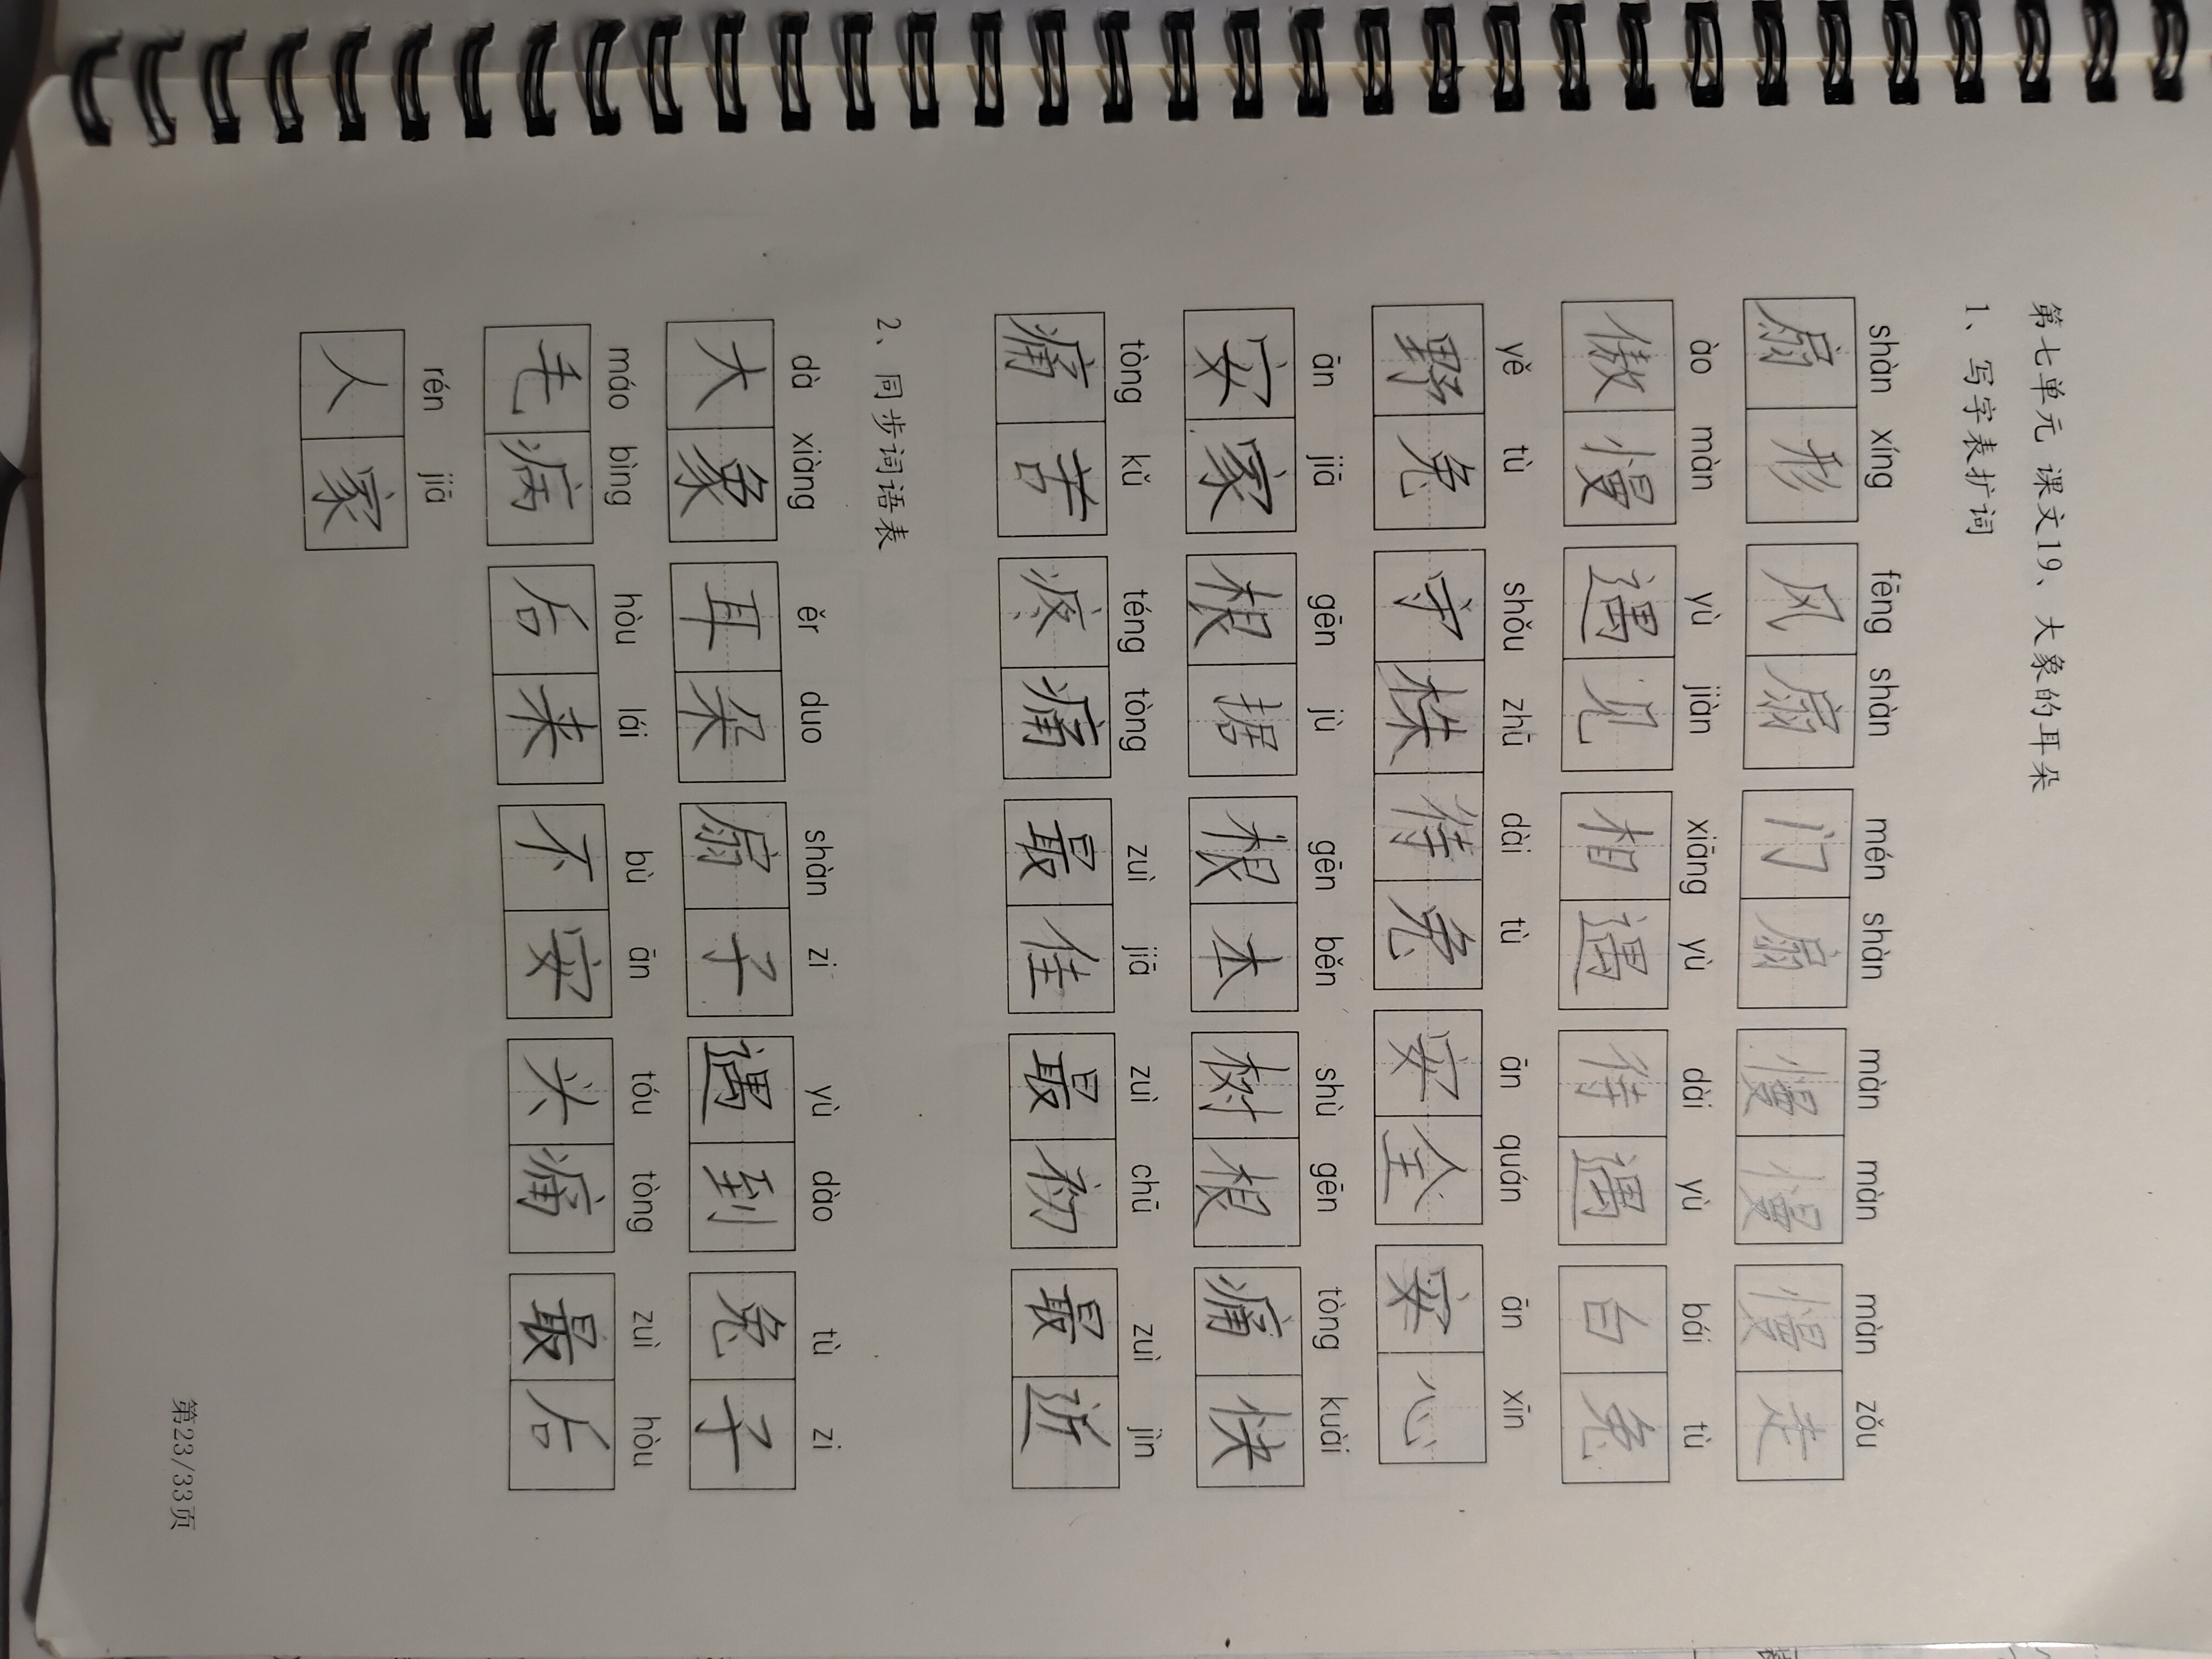 第七单元 课文19、大象的耳朵
1、写字表扩词
shàn xíng fēng shàn mén shàn màn màn màn zǒu
扇形 风扇 门扇 慢慢 慢走
ào màn yù jiàn xiāng yù dài yù bái tù
傲慢 遇见 相遇 待遇 白兔
yě tù shǒu zhū dài tù ān quán ān xīn
野兔 守株待兔 安全 安心
ān jiā gēn jù gēn běn shù gēn tòng kuài
安家 根据 根本 树根 痛快
tòng kǔ téng tòng zuì jiā zuì chū zuì jìn
痛苦 疼痛 最佳 最初 最近
2、同步词语表
dà xiàng ěr duo shàn zi yù dào tù zi
大象 耳朵 扇子 遇到 兔子
máo bìng hòu lái bù ān tóu tòng zuì hòu
毛病 后来 不安 头痛 最后
rén jiā
人家
第23/33页